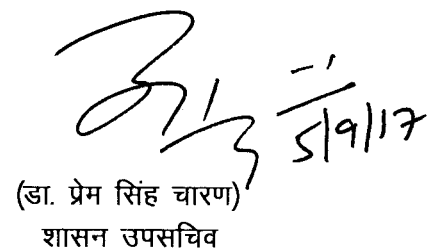 5/9/17
(डा. प्रेम सिंह चारण)
शासन उपसचिव